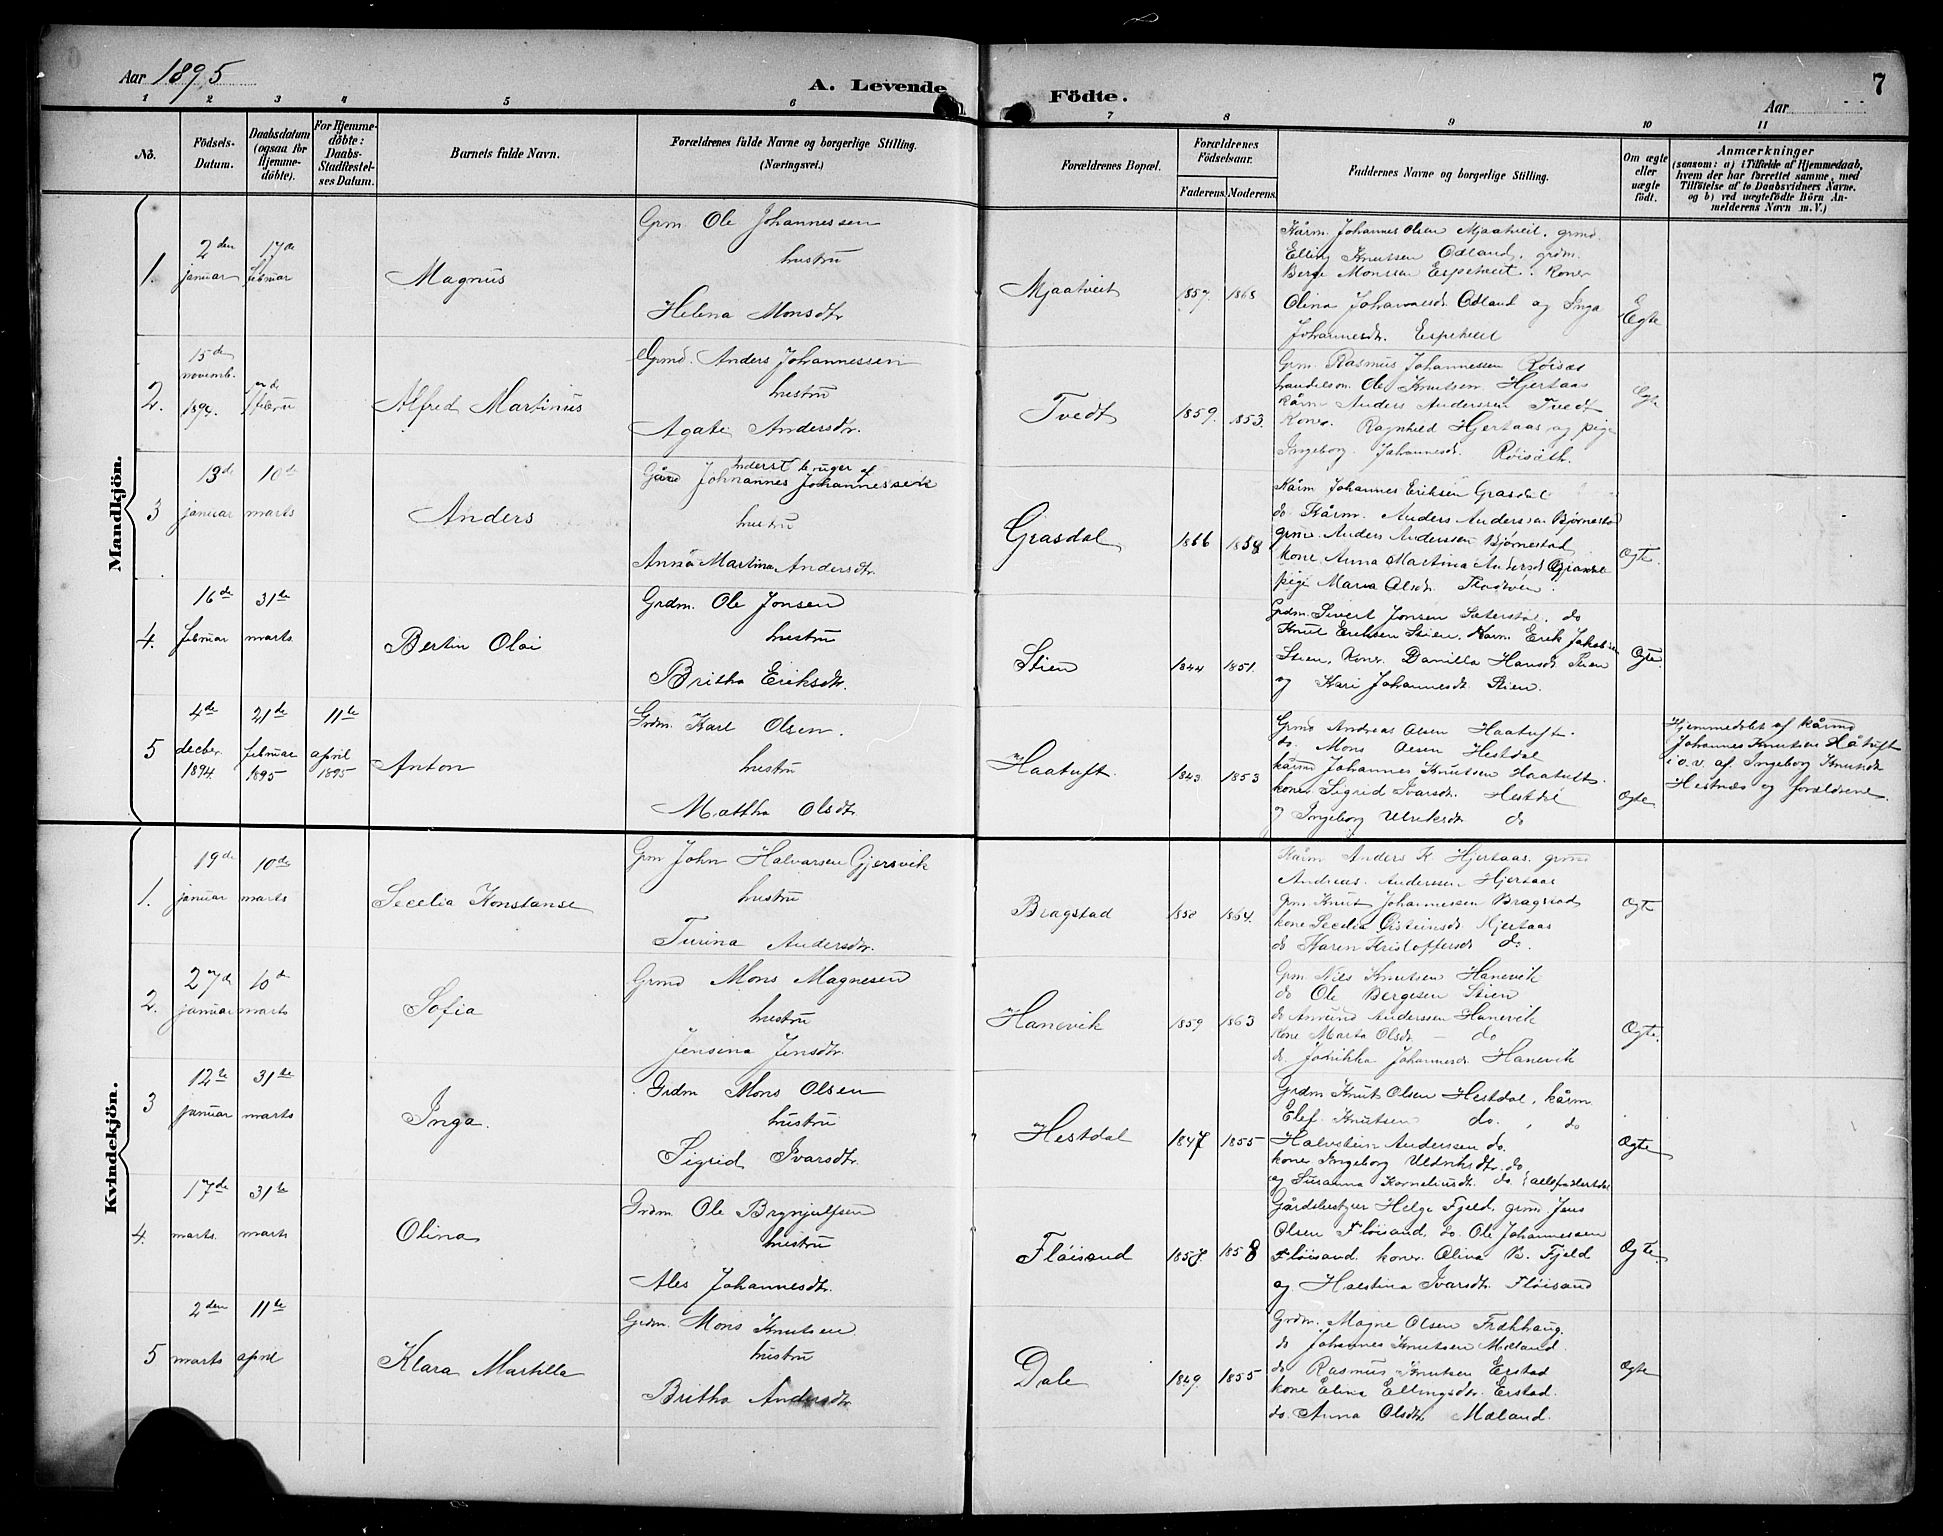 Aar 1895
A. Levende Födte.
7
Aar
1 2 3 4 5 6 7 8 9 10 11
No.
Födsels-Datum.
Daabsdatum (ogsaa for Hjemme-döbte).
For Hjemme-döbte: Daabs-Stadfæstel-ses Datum.
Barnets fulde Navn.
Forældrenes fulde Navne og borgerlige Stilling. (Næringsvei.)
Forældrenes Bopæl.
Forældrenes Födselsaar.
Faderens. Moderens.
Faddernes Navne og borgerlige Stilling.
Om ægte eller uægte födt.
Anmærkninger
(saasom: a) i Tilfælde af Hjemmedaab,
hvem der har forrettet samme, med
Tilföielse af to Daabsvidners Navne.
og b) ved uægtefödte Börn An-
melderens Navn m. V.)
Mandkjön.
1. 2den januar 17de februar
Magnus
Grm. Ole Johannessen
hustru
Helena Monsdtr
Mjaatveit 1857. 1868
Kårm. Johannes Olsen Mjaatveit. grmd.
Elling Knutsen Odland, grdm.
Berge Monssen Espetveit. Koner
Olina Johannesdr. Odland og Inga
Johannesdt. Espetveit
Egte
2. 15de novemb. 1894. 17de februar
Alfred Martinus
Grmd. Anders Johannessen
hustru
Agate Andersdr.
Tvedt 1859. 1853.
Grm. Rasmus Johannessen Röisæt
handelsm. Ole Knutsen Hjertaas
kårm Anders Anderssen Tvedt
Koner. Ragnhild Hjertaas og pige
Ingeborg Johannesdr. Röisæth.
Egte
3 13de januar 10de marts
Anders
inderst bruger af
Gård Johannes Johannessen
hustru
Anna Martina Andersdtr.
Grasdal 1866 1868
Kårm Johannes Eriksen Grasdal
do Kårm. Anders Anderssen Bjørnestad
grm. Anders Anderssen Bjørnestad
kone Anna Martina Andersd
pige Maria Olsdr.
Ogte.
4. 16de februar 31te marts
Bertin Olai
Grdm. Ole Jonsen
hustru
Britha Eriksdtr.
Stien 1844 1851.
Grdm. Sivert Jonsen Sæterstøl. do
Knut Eriksen Stien, Karm. Erik Jakobsen
Stien, Koner Danilla Hansdr Stien
og Kari Johannesdt. Stien.
Ogte.
5 4de decber. 1894 21de februar 1895 11te april 1895
Anton
Grdm. Karl Olsen.
hustru
Mattha Olsdtr
Haatuft. 1843. 1853
Grmd Andreas Olsen Haatuft.
do. Mons Olsen Hestdal
kårmd Johannes Knutsen Haatuft.
koner Sigrid Ivarsdr. Hestdal
og Ingeborg Ulriksdt do
Ogte
Hjemmedøbt af kårmd
Johannes Knutsen Håtuft
i o. v. af. Ingeborg Knutsdt
Hestnæs og forældrene.
Kvindekjön.
1. 19de januar 10de marts
Secelia Konstanse
Grm John Halvarsen Gjersvik
hustru
Turina Andersdtr.
Bragstad 1858 1864.
Kårm Anders K Hjertaas. grmd
Andreas. Anderssen Hjertaas
Grm Knut Johannessen Bragstad
kone Secelia Oisteinsdt Hjertaas
do Karen Kristoffersdt do.
Ogte
2. 27de januar 10de marts
Sofia
Grmd Mons Magnesen
hustru
Jensina Jensdtr.
Hanevik 1859 1863
Grm. Nils Knutsen Hanevik
do Ole Bergesen Stien
do Amund Anderssen Hanevik
Kone Marta Olsdt. — do
do. Johannesdr. Hanevik
Ogte.
3 12te januar 31te marts
Inga.
Grdm Mons Olsen
hustru
Sigrid Ivarsdtr.
Hestdal 1847 1855
Grdm Knut Olsen Hestdal, kårm
Elef Knutsen do. , do
Halvstein Anderssen do.
kone Ingeborg Uldriksdtr. do
og Susanna Korneliusdt. do
Ogte
4. 17de marts. 31te marts
Olina
Grdm. Ole Brynjulfsen
hustru
Ales Johannesdtr.
Flöisand 1857. 1858
Gårdbestyer Helge Fjeld, grmd Jens
Olsen Flöisand, do. Ole Johannessen
Flöisand. koner. Olina B. Fjeld
og Halstina Ivarsdtr. Flöisand
Ogte.
5 2den marts 11te april
Klara Martilla
Grdm. Mons Knutsen
hustru
Britha Andersdtr.
Dale 1849. 1855
Grdm. Magne Olsen Frekhaug.
do Johannes Knutsen Mæland.
do Rasmus Knutsen Erstad
kone Elina Ellingsdtr. Erstad.
do. Anna Olsdtr Mæland.
Ogte